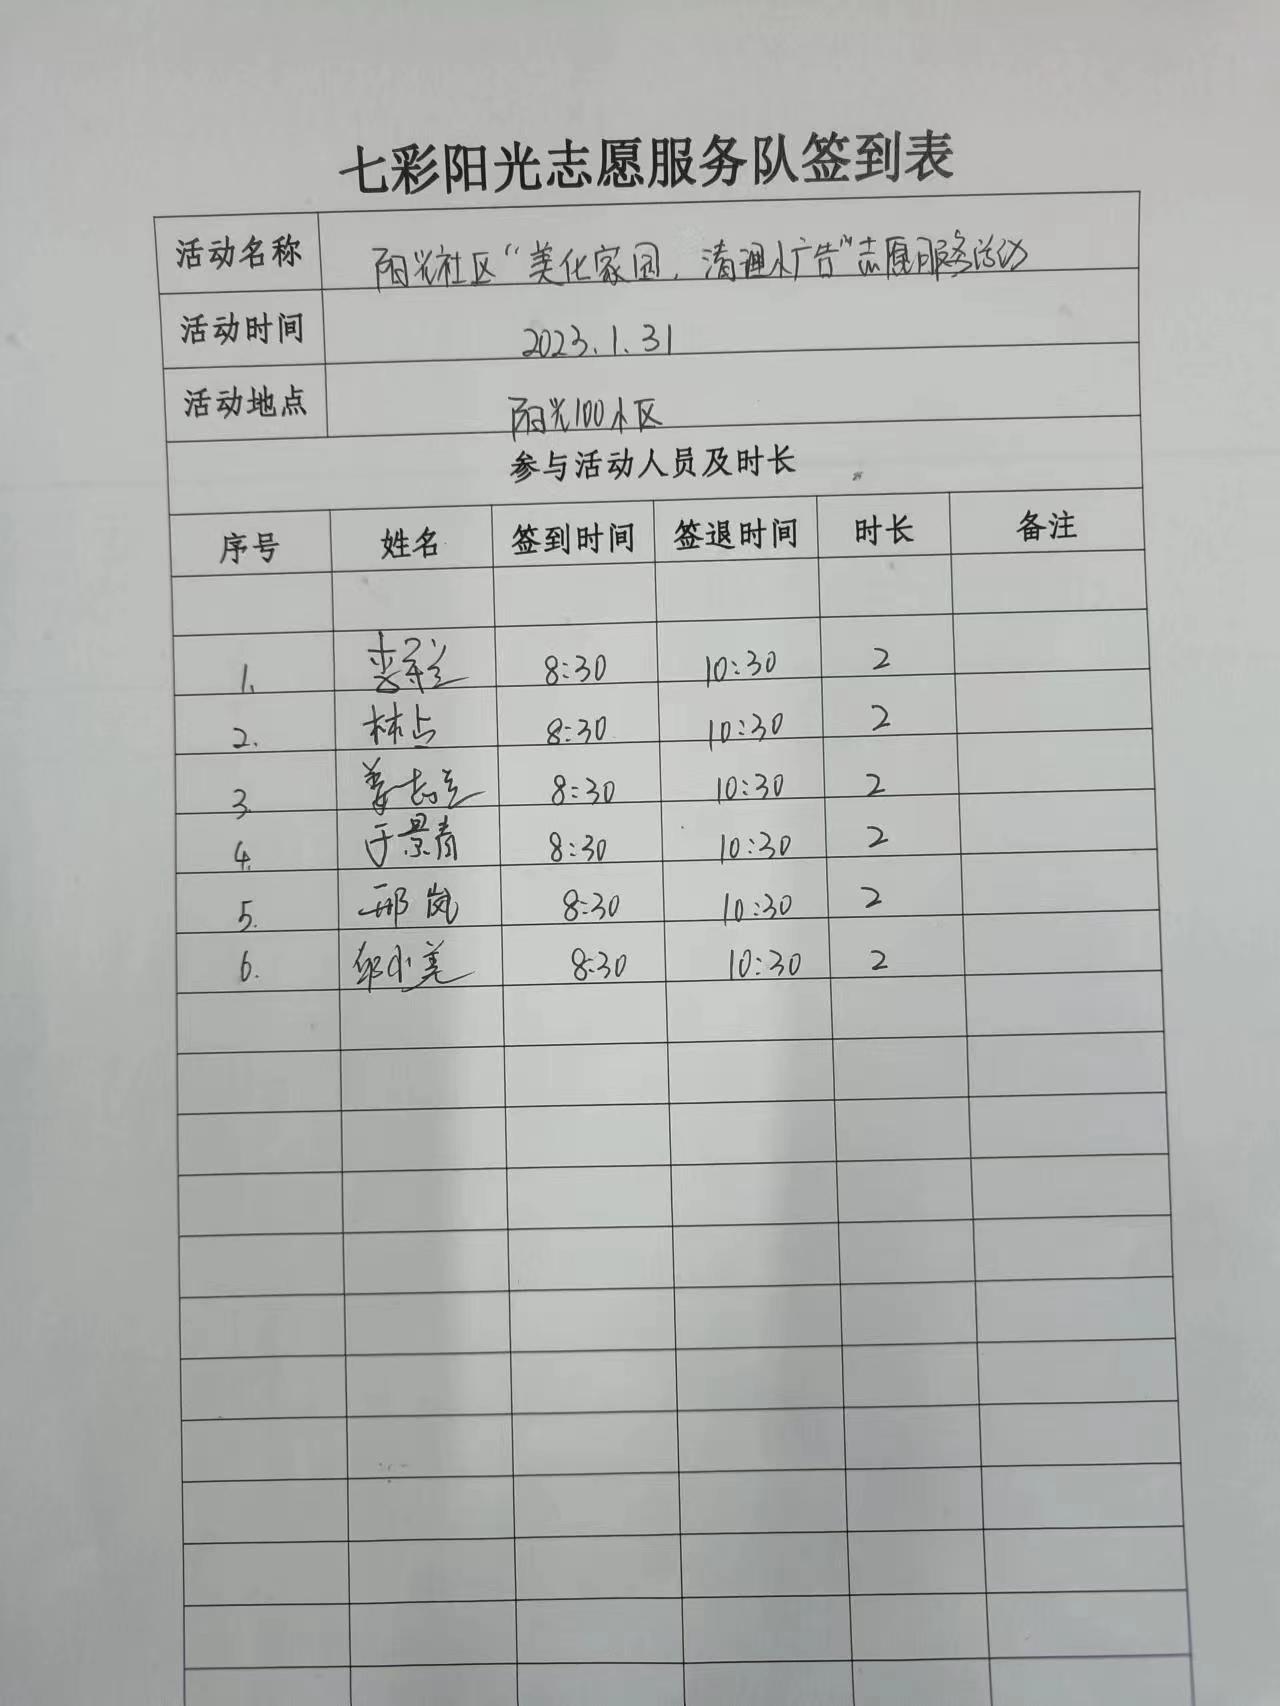 七彩阳光志愿服务队签到表
活动名称 阳光社区“美化家园，清理小广告”志愿服务活动
活动时间 2023.1.31
活动地点 阳光100小区
参与活动人员及时长
序号 姓名 签到时间 签退时间 时长 备注
1. 8:30 10:30 2
2. 林占 8:30 10:30 2
3. 8:30 10:30 2
4. 于景青 8:30 10:30 2
5. 邢岚 8:30 10:30 2
6. 邹小美 8:30 10:30 2